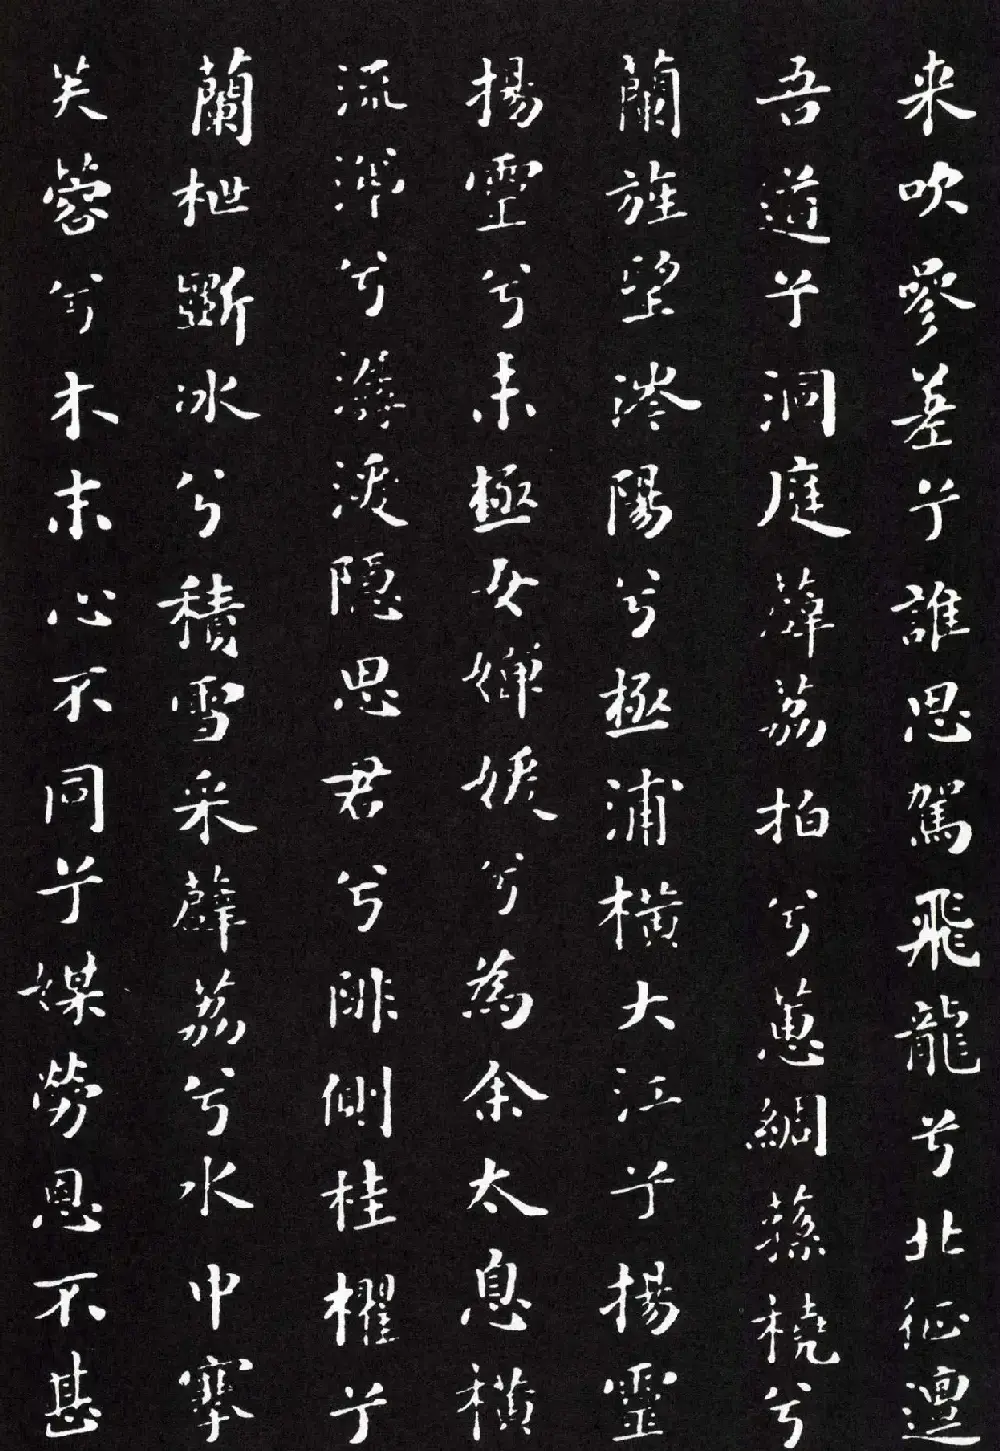 来吹參差兮誰思駕飛龍兮北征邅
吾道兮洞庭薜荔拍兮蕙綢蓀橈兮
蘭旌望涔陽兮極浦橫大江兮揚靈
揚靈兮未極女嬋媛兮為余太息橫
流涕兮潺湲隱思君兮陫側桂櫂兮
蘭枻斲冰兮積雪采薜荔兮水中搴
芙蓉兮木末心不同兮媒勞恩不甚